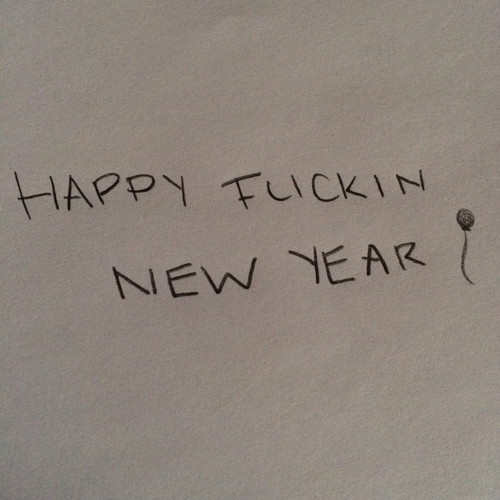 HAPPY FUCKIN
NEW YEAR